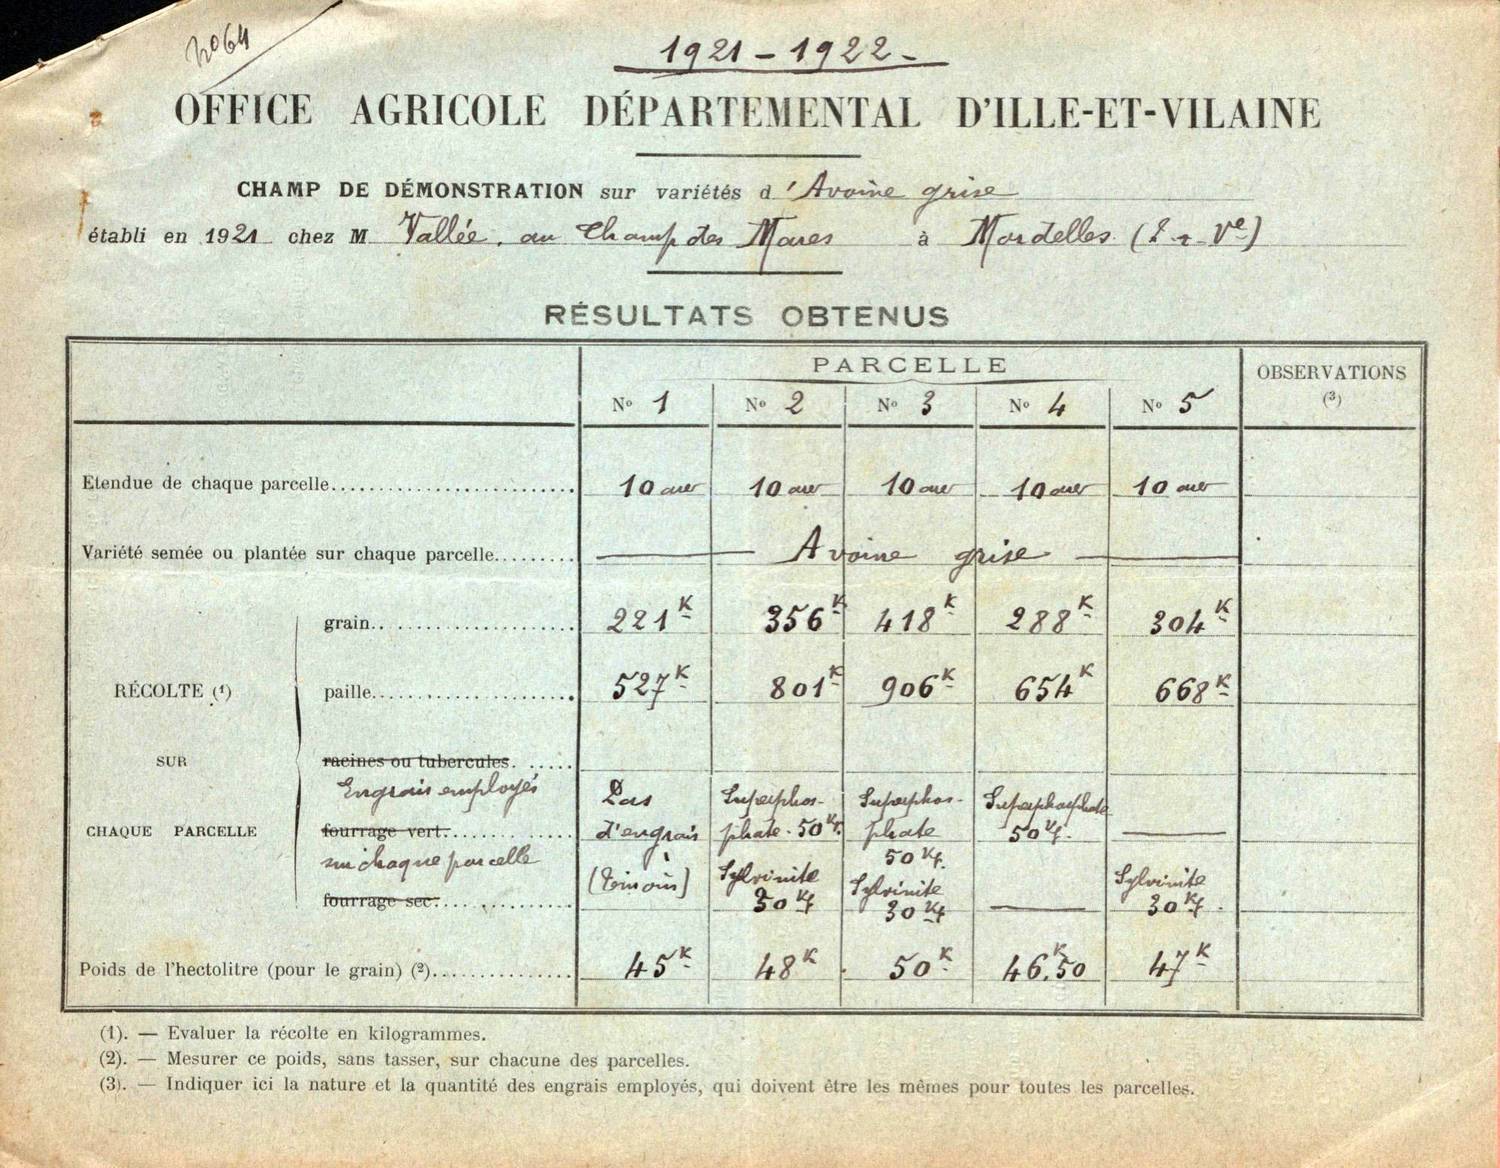 No 64
1921 - 1922 -
OFFICE AGRICOLE DÉPARTEMENTAL D'ILLE-ET-VILAINE
CHAMP DE DÉMONSTRATION sur variétés d'Avoine grise
établi en 1921 chez M Vallée, au Champ des Mares à Mordelles (I-et-Ve)
RÉSULTATS OBTENUS
PARCELLE
OBSERVATIONS (3)
No 1 No 2 No 3 No 4 No 5
Etendue de chaque parcelle 10 ares 10 ares 10 ares 10 ares 10 ares
Variété semée ou plantée sur chaque parcelle Avoine grise
RÉCOLTE (1) SUR CHAQUE PARCELLE
grain 221K 356K 418K 288K 304K
paille 527K 801K 906K 654K 668K
racines ou tubercules
Engrais employés
fourrage vert
sur chaque parcelle
fourrage sec
Pas d'engrais (témoin)
Superphosphate. 50 Kg. Sylvinite 30 Kg
Superphosphate 50 Kg. Sylvinite 30 Kg
Superphosphate 50 Kg. —
— Sylvinite 30 Kg.
Poids de l'hectolitre (pour le grain) (2) 45K 48K 50K 46K,50 47K
(1). — Evaluer la récolte en kilogrammes.
(2). — Mesurer ce poids, sans tasser, sur chacune des parcelles.
(3). — Indiquer ici la nature et la quantité des engrais employés, qui doivent être les mêmes pour toutes les parcelles.